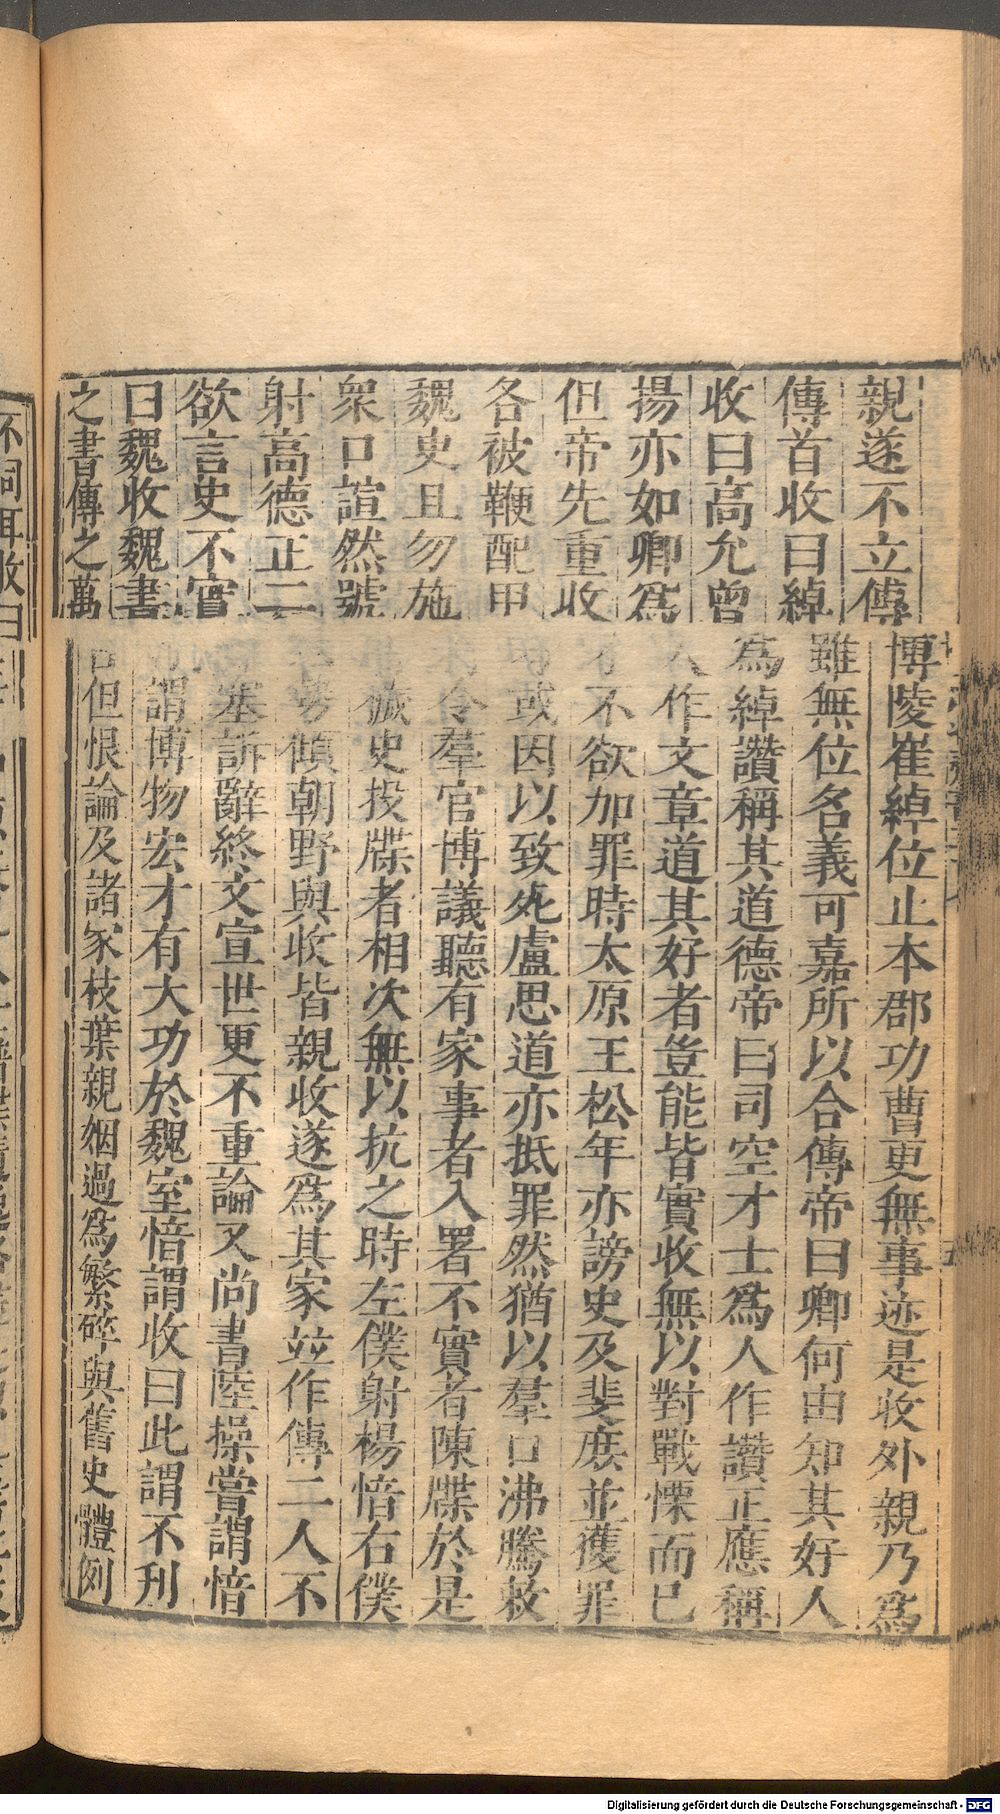 親遂不立傳博陵崔綽位止本郡功曹更無事迹是收外親乃為
傳首收曰綽雖無位名義可嘉所以合傳帝曰卿何由知其好人
收曰高允曾為綽讚稱其道德帝曰司空才士為人作讚正應稱
揚亦如卿為人作文章道其好者豈能皆實收無以對戰慄而已
但帝先重收才不欲加罪時太原王松年亦謗史及斐庶並獲罪
各被鞭配甲坊或因以致死盧思道亦抵罪然猶以羣口沸騰敕
魏史且勿施令羣官博議聽有家事者入署不實者陳牒於是
衆口諠然號穢史投牒者相次無以抗之時左僕射楊愔右僕
射高德正二勢傾朝野與收皆親收遂為其家並作傳二人不
欲言史不實塞訴辭終文宣世更不重論又尚書陸操嘗謂愔
曰魏收魏書謂博物宏才有大功於魏室愔謂收曰此謂不刊
之書傳之萬古但恨論及諸家枝葉親姻過為繁碎與舊史體例
不同耳收曰
Digitalisierung gefördert durch die Deutsche Forschungsgemeinschaft - DFG